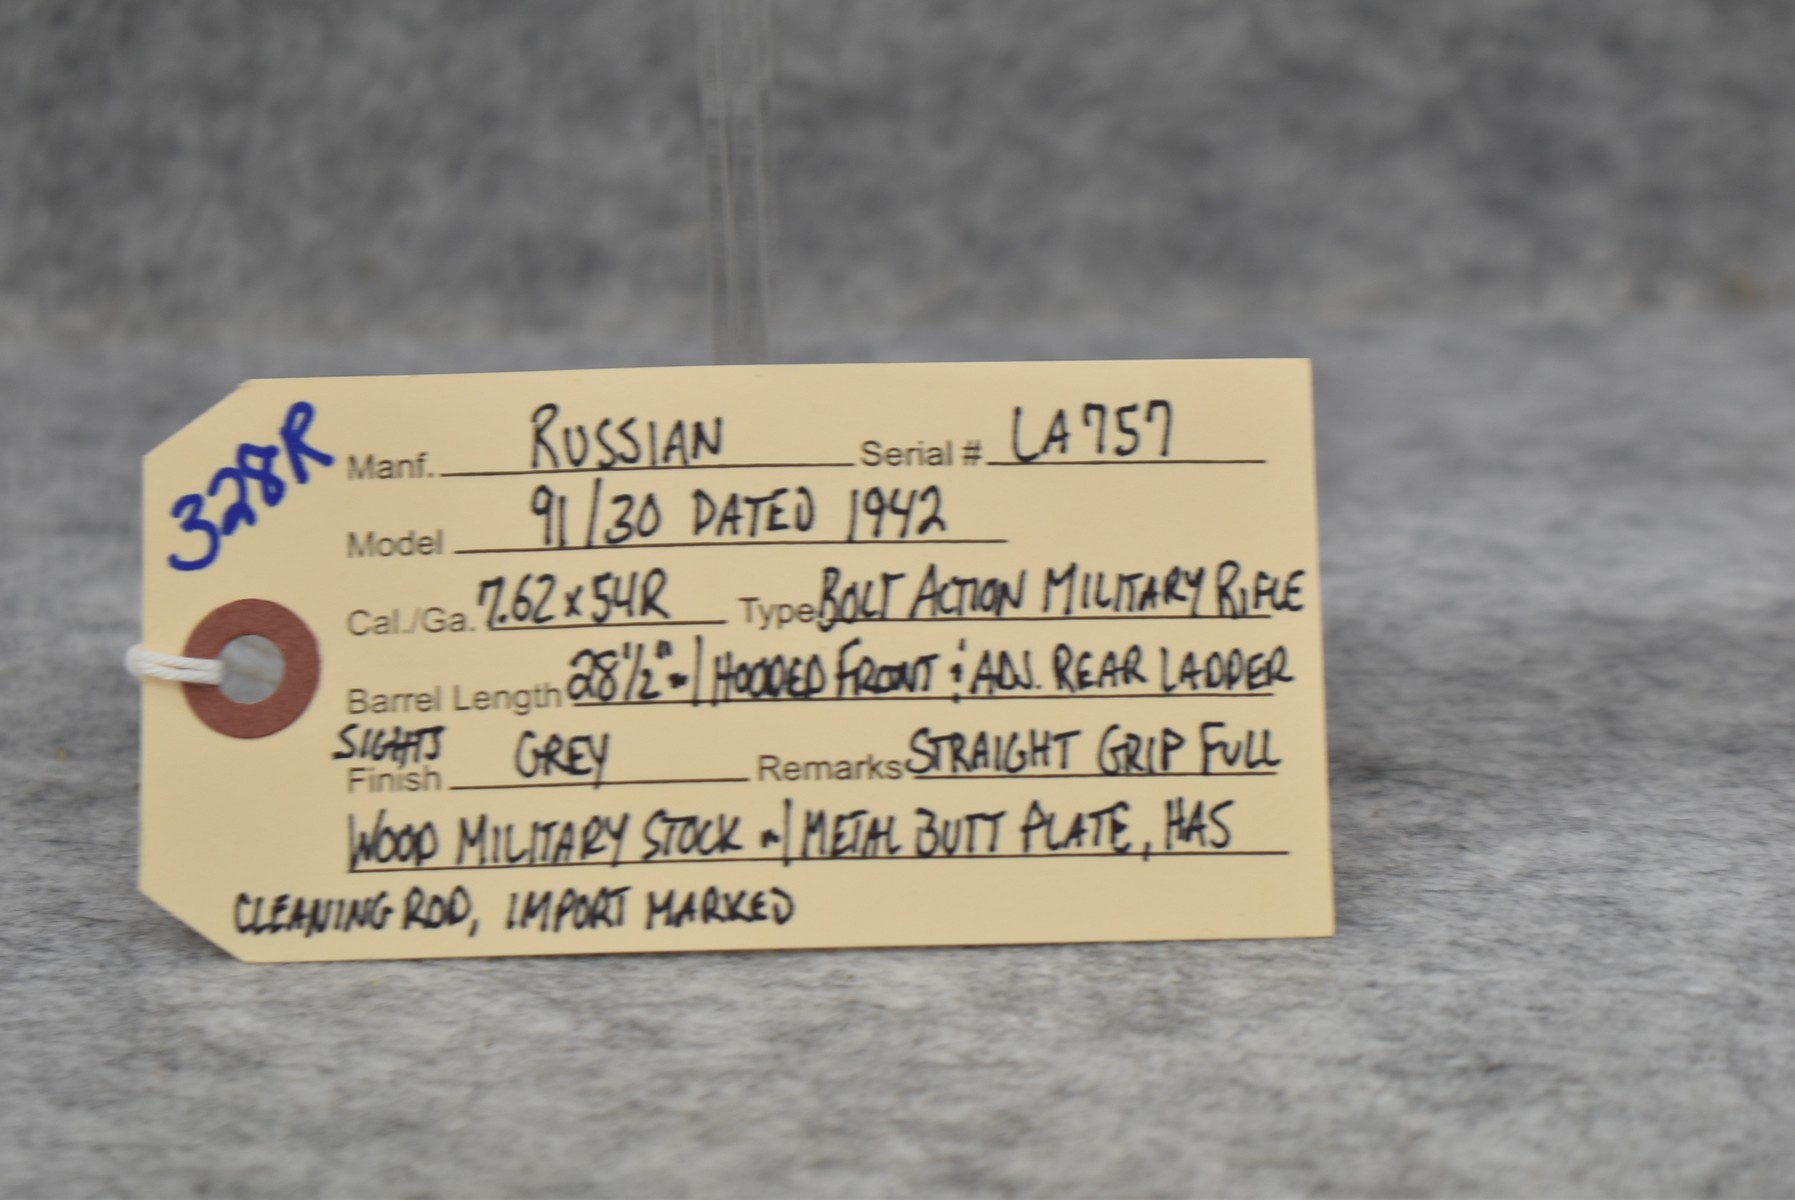 328R
Manf. RUSSIAN Serial # LA757
Model 91/30 DATED 1942
Cal./Ga. 7.62x54R Type BOLT ACTION MILITARY RIFLE
Barrel Length 28 1/2" w/ HOODED FRONT & ADJ. REAR LADDER
SIGHTS
Finish GREY Remarks STRAIGHT GRIP FULL
WOOD MILITARY STOCK w/ METAL BUTT PLATE, HAS
CLEANING ROD, IMPORT MARKED